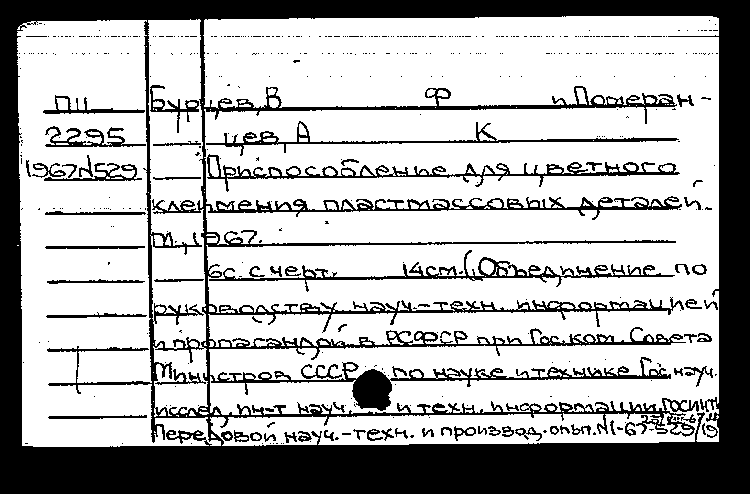 П11 Бурцев, В Ф и Померан-
2295 цев, А К
1967N529 Приспособление для цветного
клеймения пластмассовых деталей.
М., 1967.
6с. с черт. 14см. (Объединение по
руководству науч.-техн. информацией
и пропагандой в РСФСР при Гос. ком. Совета
Министров СССР по науке и технике Гос. науч.
исслед. ин-т науч. и техн. информации. ГОСИНТИ
Передовой науч.-техн. и производ. опыт. N1-67-529/19